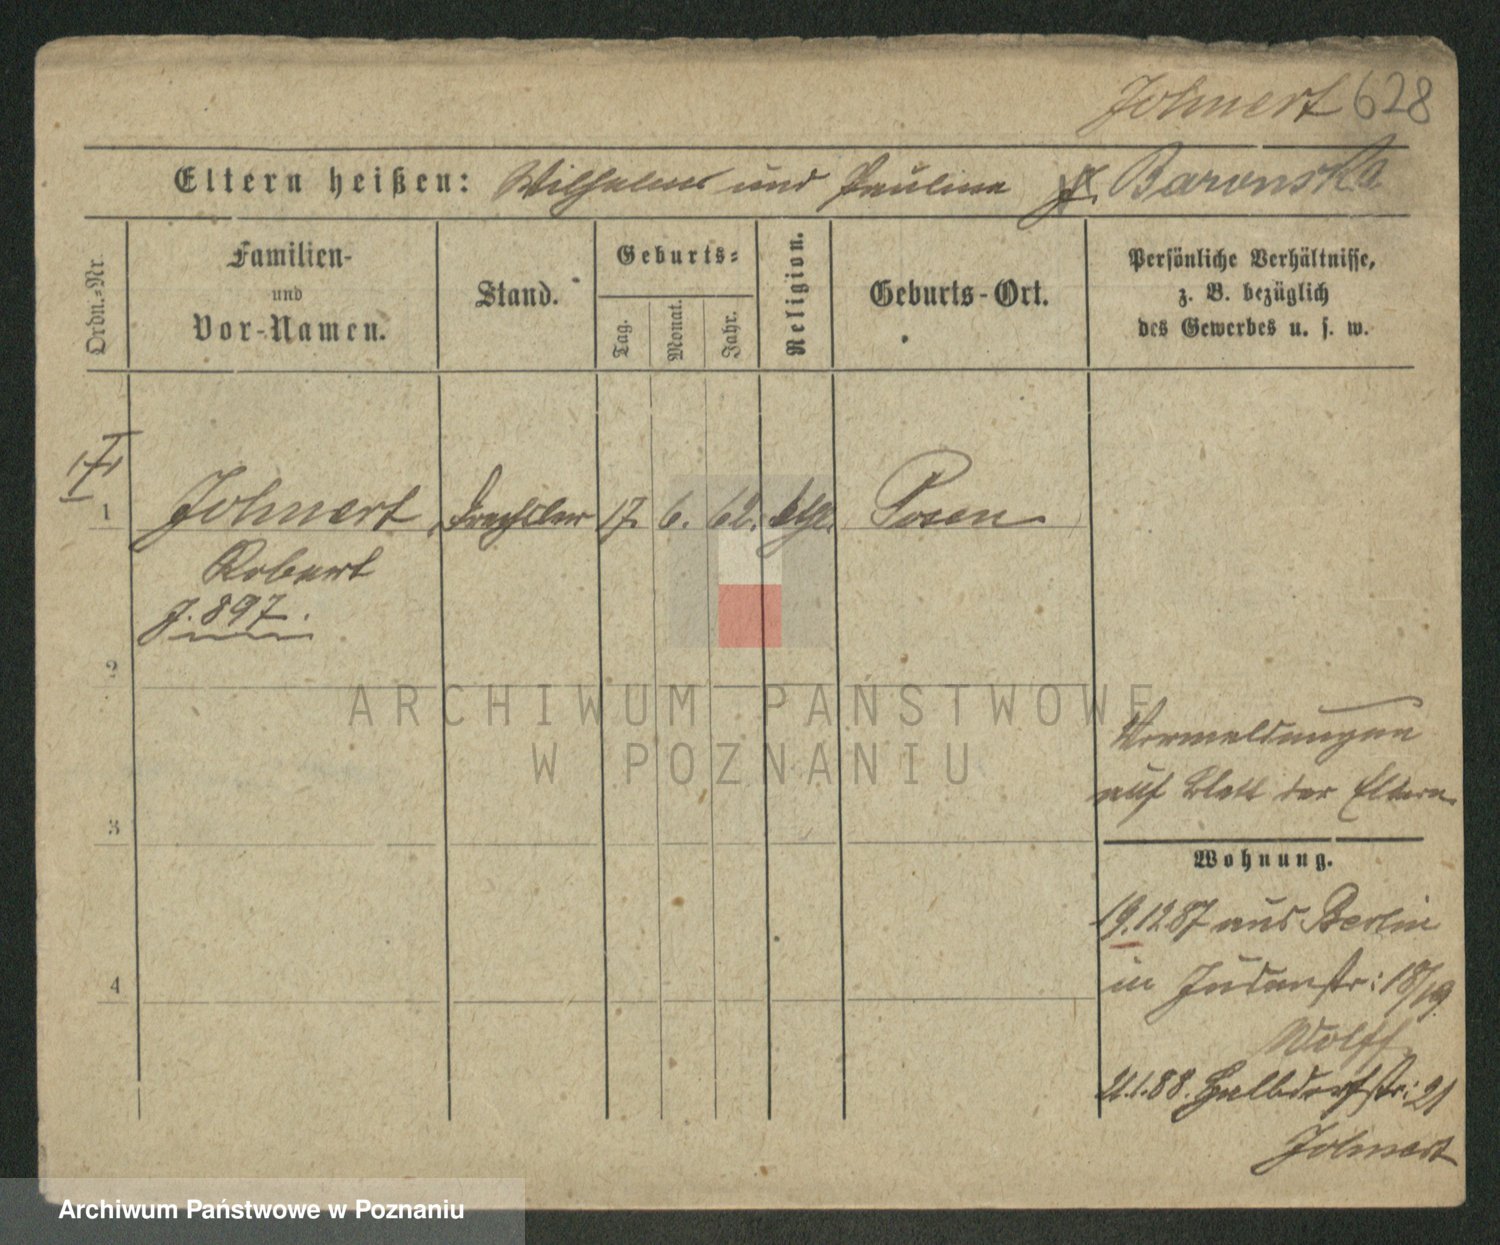 Johnert 628
Eltern heißen: Wilhelm und Pauline g. Baronska
Ordn.-Nr.
Familien-
und
Vor-Namen.
Stand.
Geburts-
Tag.
Monat.
Jahr.
Religion.
Geburts-Ort.
Persönliche Verhältnisse,
z. B. bezüglich
des Gewerbes u. s. w.
1 Johnert Drechsler 17. 6. 62. ktl. Posen
Robert
J. 897.
2
3
4
Vermeldungen
auf Blatt der Eltern
Wohnung.
19.12 87 aus Berlin
in Judenstr: 18/19.
Wolff
21.1.88. Halbdorfstr: 21
Johnert
ARCHIWUM PAŃSTWOWE
W POZNANIU
Archiwum Państwowe w Poznaniu